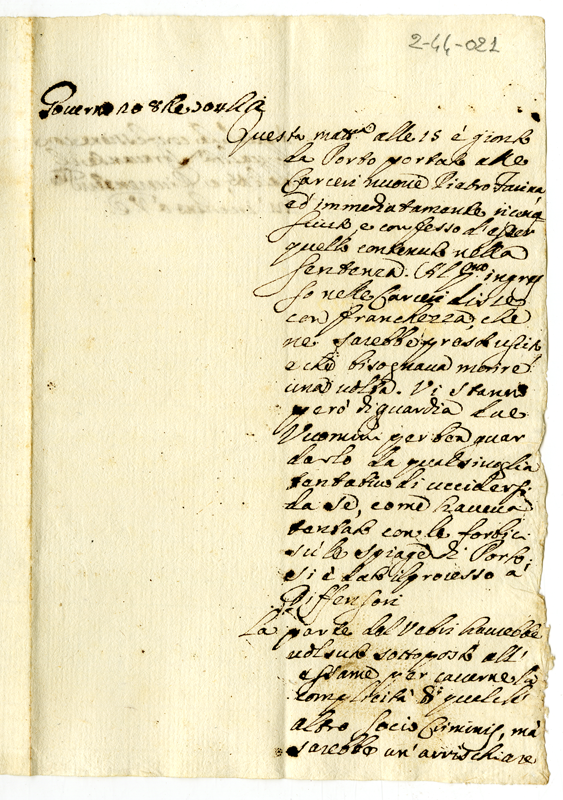 2-44-021
Governo 10 8bre
Questa matt.a alle 15 è gionto
da Porto portato alle
Carceri nuove Pietro
ed immediatamente ricono
sciuto, e confessò d'esser
quello contenuto nella
sentenza. Al p.mo ingres
so nelle Carceri disse
con franchezza, che
ne sarebbe presto uscito
e che bisognava morire
una volta. Vi stanno
però di guardia due
Vuomini per ben guar
darlo da qualsivoglia
tentativo di uccidersi
da sè, come haveva
tentato con le forbici
sù le spiagge di Porto,
si è dato il processo a
Diffensori
La parte del haverebbe
volsuto sottoposto all'
essame, per caverne la
complicità di qualche
altro socio Criminis, mà
sarebbe un' arrischiare